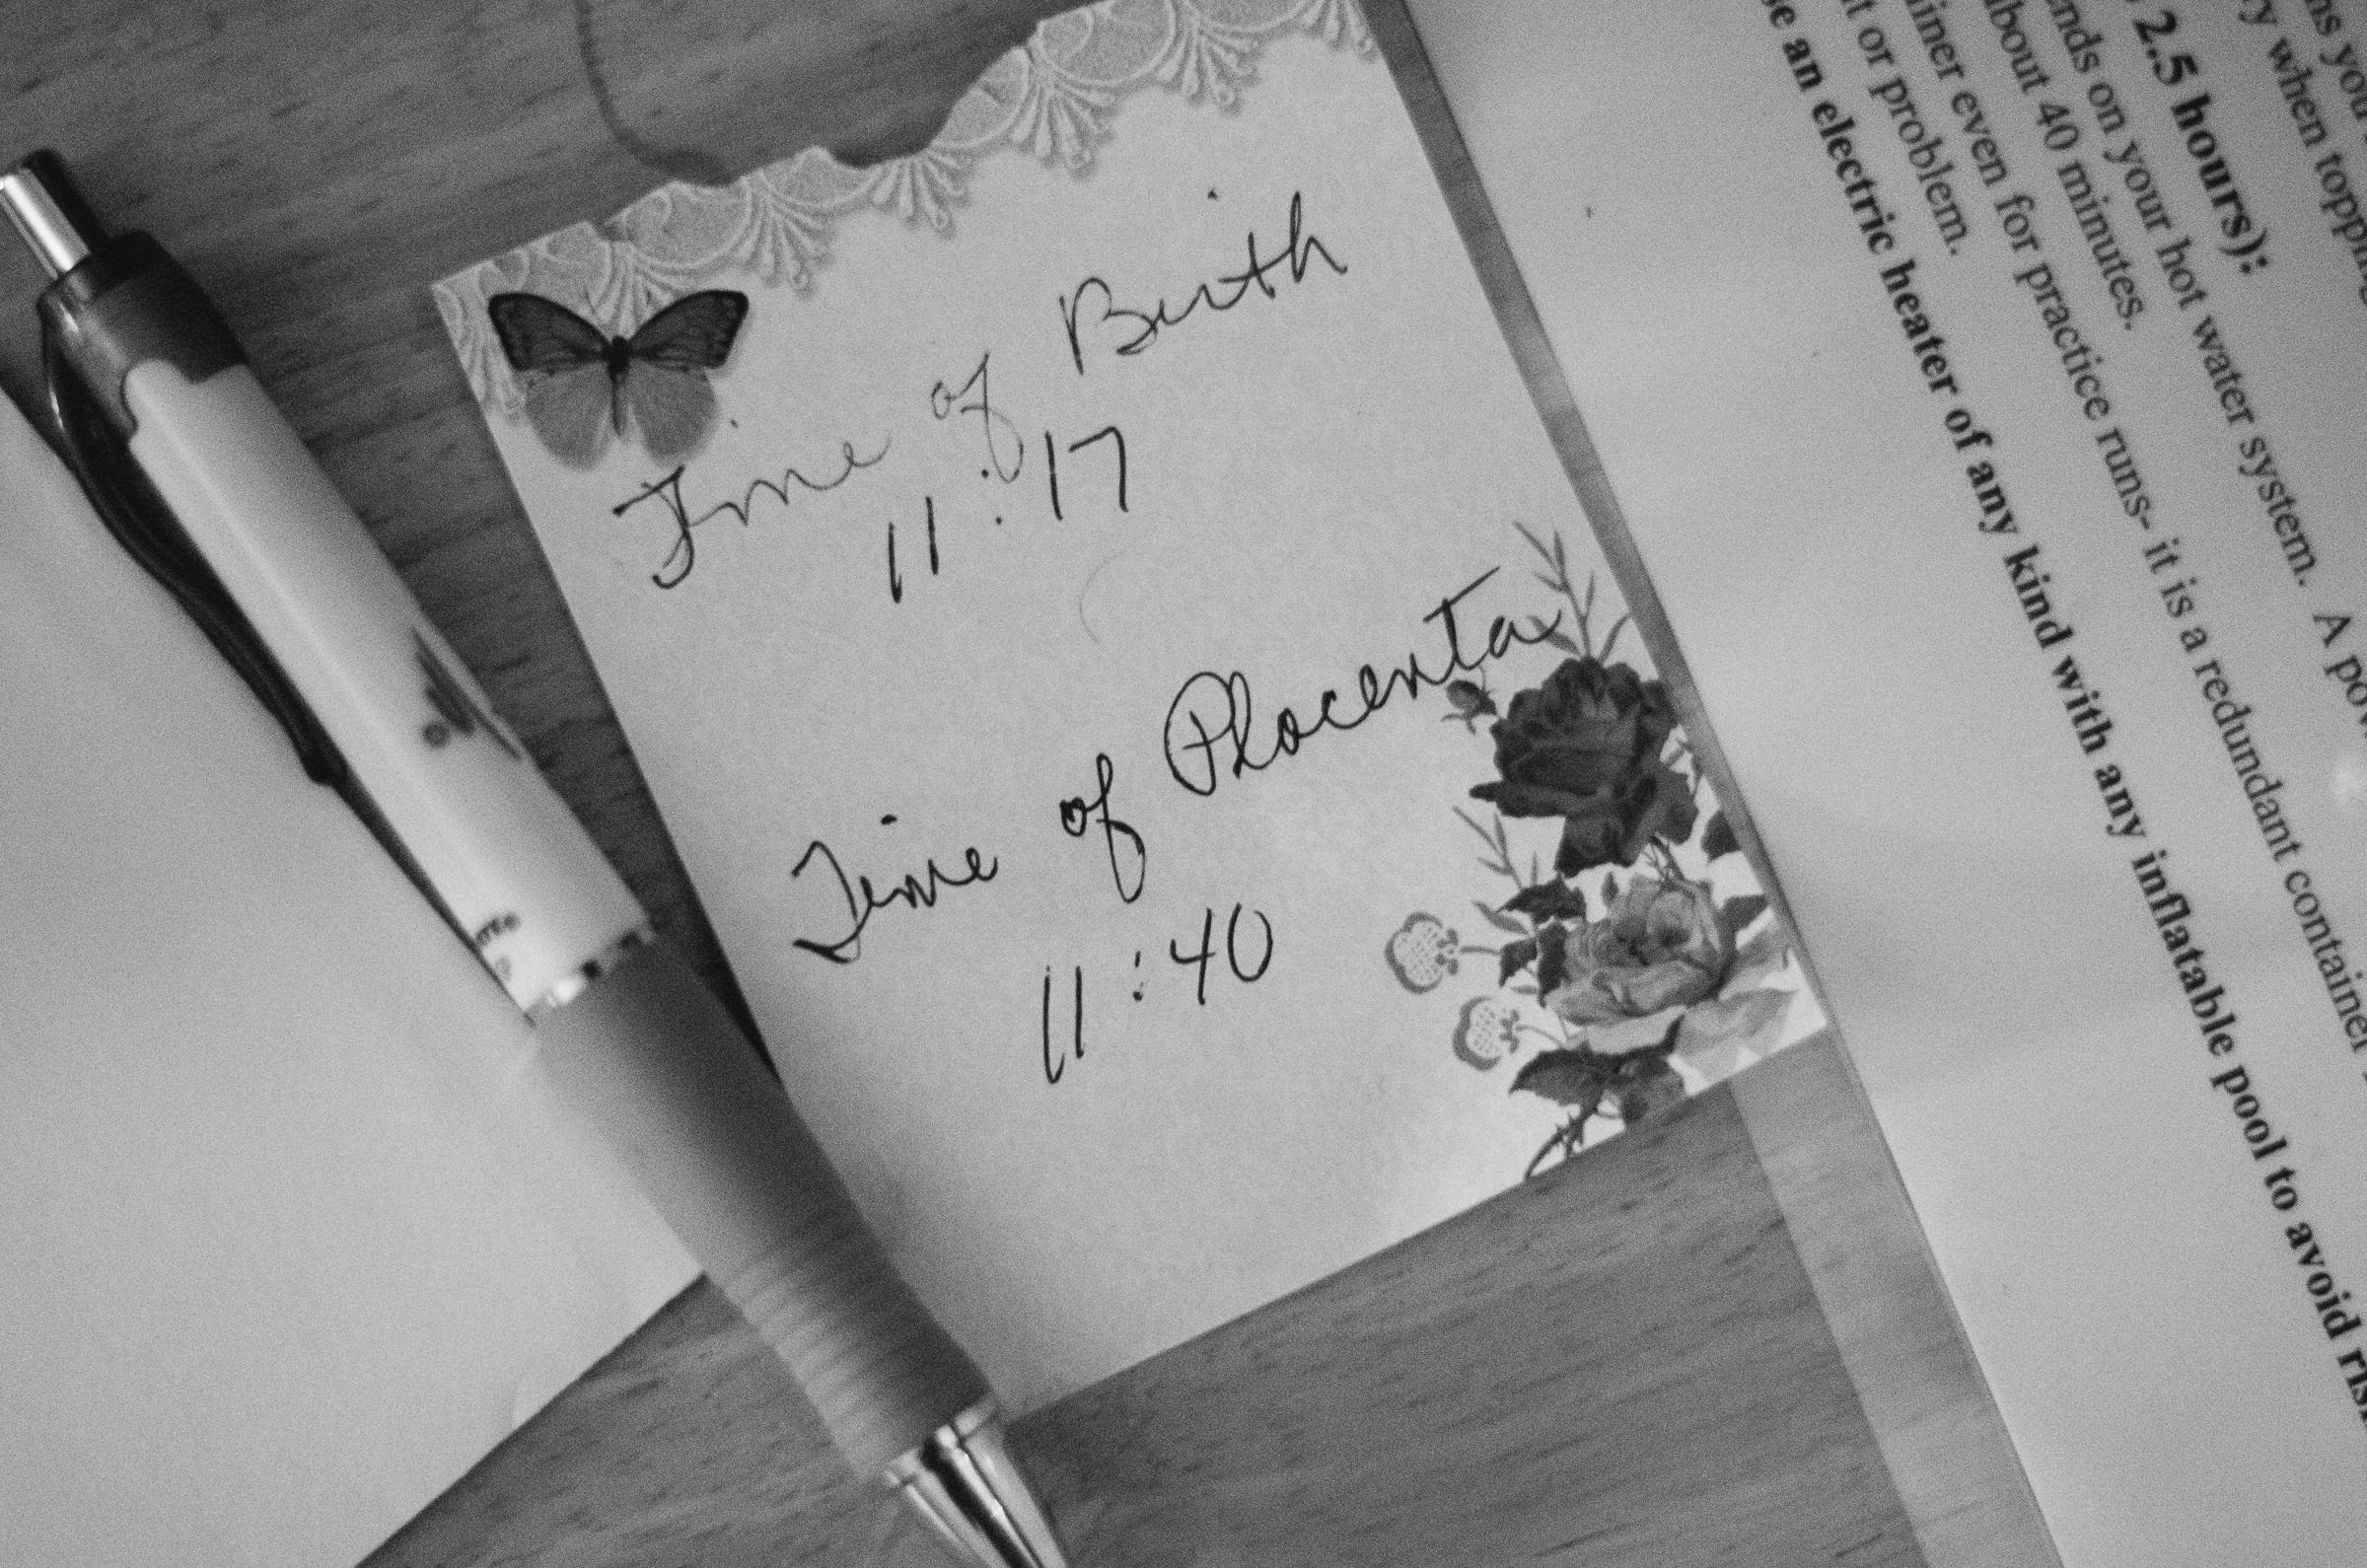 Time of Birth
11:17
Time of Placenta
11:40
ns you
ry when topping
2.5 hours):
nds on your hot water system. A pow
about 40 minutes.
iner even for practice runs- it is a redundant container
t or problem.
se an electric heater of any kind with any inflatable pool to avoid ris